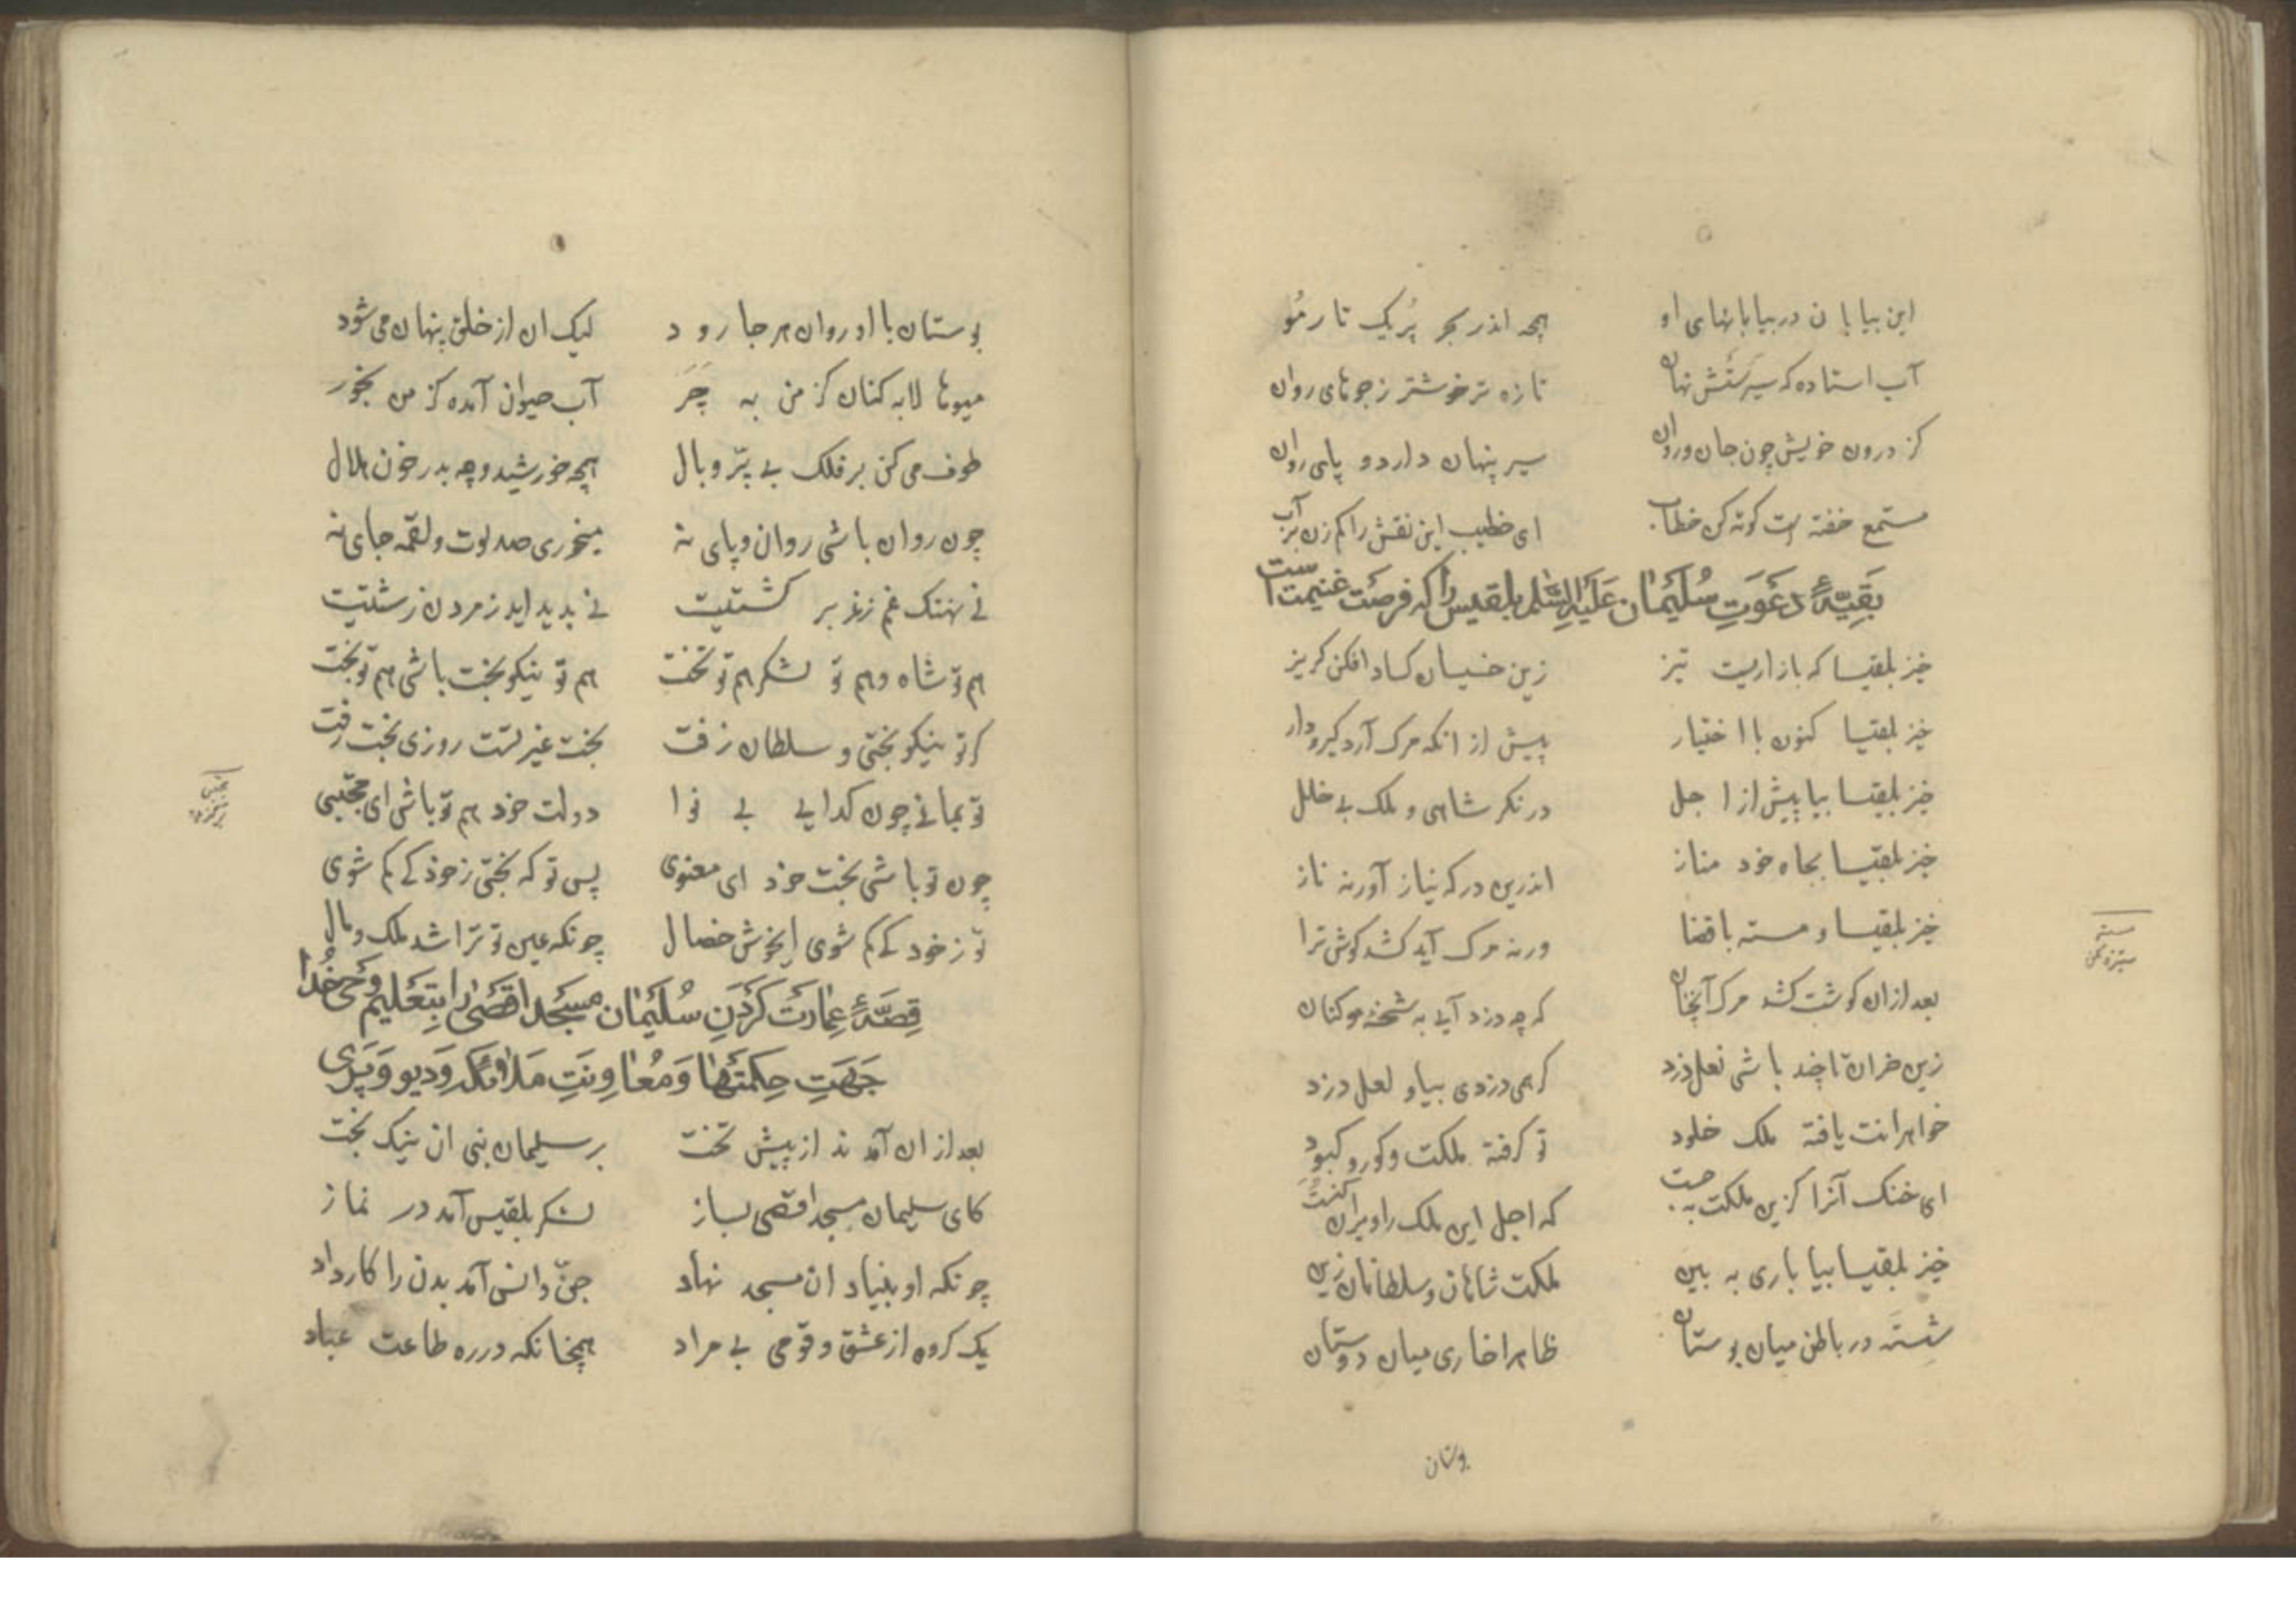 این بیابان در بیابانهای او همچو اندر بحر پُر یک تار مُو
آب استاده که سیرَستَش نهان تازه تر خوشتر ز جوهای روان
کز درون خویش چون جان و روان سیر پنهان دارد و پای روان
مستمع خفته است کوته کن خطاب ای خطیب این نقش را کم زن بر آب
بَقِیّهٔ دَعَوَتِ سُلَیْمان عَلَیْهِ السَّلم بلقیس را که فرصَت غنیمت است
خیز بلقیسا که بازاریست تیز زین خسیسان کساد افکن کریز
خیز بلقیسا کنون با اختیار پیش از انکه مرک آرد کیر و دار
خیز بلقیسا بیا پیش از اجل در نکر شاهی و ملک بی خلل
خیز بلقیسا بجاه خود مناز اندرین درکه نیاز آور نه ناز
خیز بلقیسا و مسته با قضا ورنه مرک آید کشد کوش ترا
بعد ازان کوشت کشد مرک آنچنان که چو دزد آیی به شحنه موکنان
زین خران تا چند باشی نعل دزد کر همی دزدی بیا و لعل دزد
خواهرانت یافته ملک خلود تو کرفته ملکت و کور و کبود
ای خنک آنرا کزین ملکت بجست که اجل این ملک را ویران کنست
خیز بلقیسا بیا باری به بین ملکت شاهان و سلطانان زین
شِسته در باطن میان بوستان ظاهرا خاری میان دوستان
بوستان
بوستان با او روان هر جا رود لیک ان از خلق پنهان می شود
میوها لابه کنان کز من به چَر آب حیوان آمده کز من بخور
طوف می کن بر فلک بی پرّ و بال همچو خورشید و چو بدر و چون هلال
چون روان باشی روان و پای نه میخوری صد لوت و لقمه جای نه
نی نهنک غم زند بر کشتیت نی پدید اید ز مردن زشتیت
هم تو شاه و هم تو لشکر هم تو تخت هم تو نیکو بخت باشی هم تو بخت
کر تو نیکو بختی و سلطان زفت بخت غیر تست روزی بخت رفت
تو بمانی چون کدایی بی نوا دولت خود هم تو باش ای مجتبی
چون تو باشی بخت خود ای معنوی پس تو که بختی ز خود کی کم شوی
تو ز خود کی کم شوی ای خوش خصال چونکه عین تو ترا شد ملک و مال
قِصّهٔ عِمارَت کَرْدَنِ سُلَیْمان مَسْجِد اقصَی را بِتَعْلیم وَحْیِ خُدا
جِهَتِ حِکمَتْها وَ مُعاوِنَتِ مَلائکه وَ دیو وَ پَری
بعد ازان آمد ندا از پیش تخت بر سلیمان نبی ان نیک بخت
کای سلیمان مسجد اقصی بساز لشکر بلقیس آمد در نماز
چونکه او بنیاد ان مسجد نهاد جنّ و انس آمد بدن را کار داد
یک کروه از عشق و قومی بی مراد همچنانکه در ره طاعت عباد